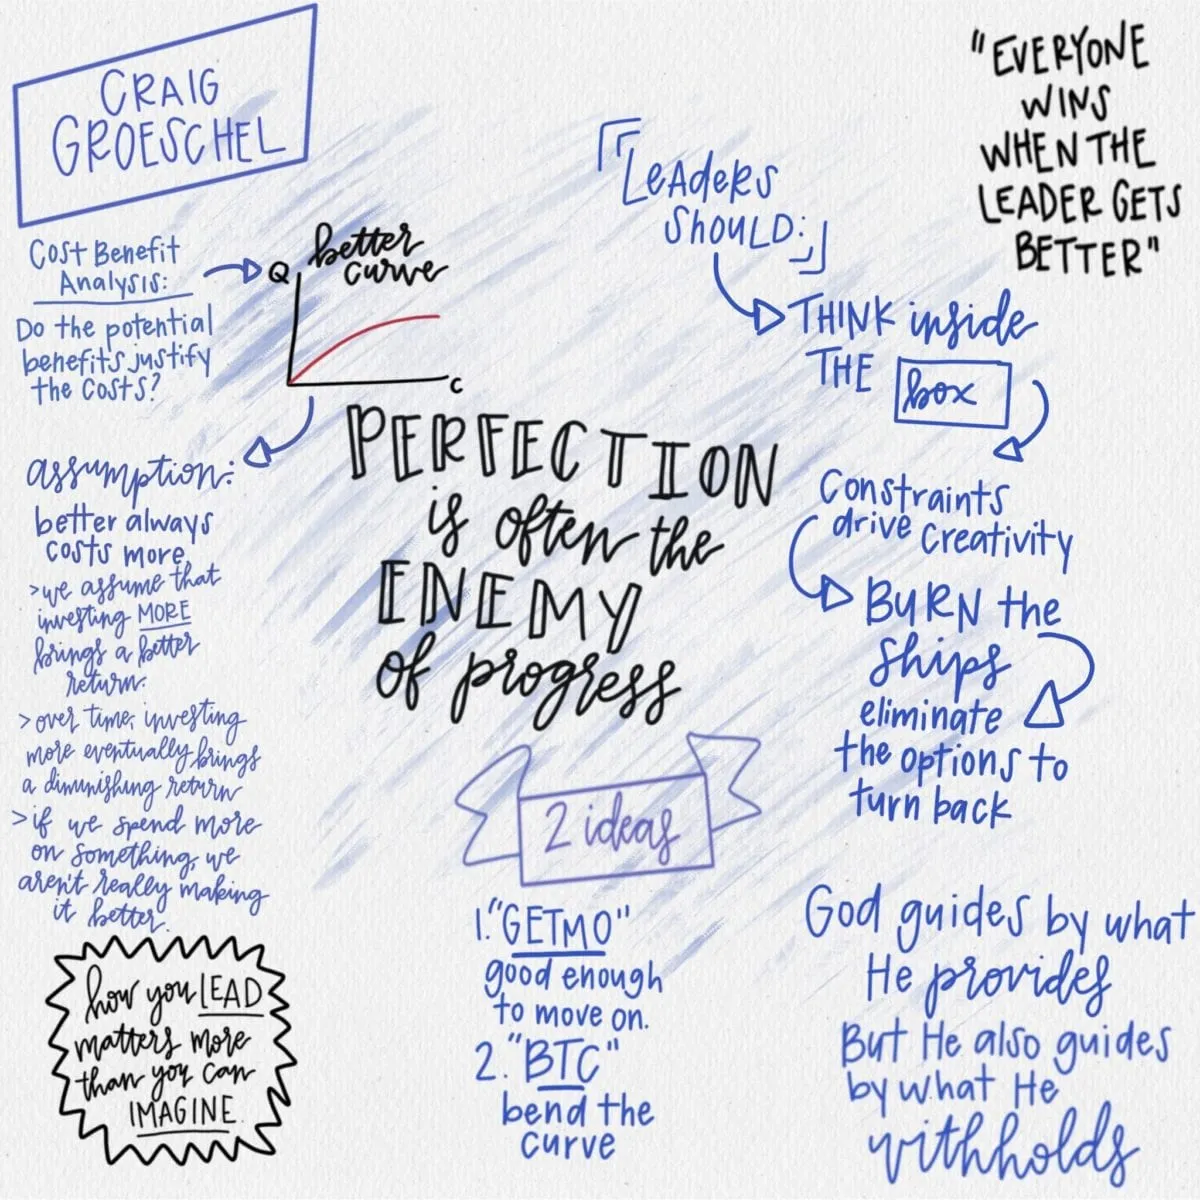 CRAIG
GROESCHEL
Cost Benefit
Analysis:
Do the potential
benefits justify
the costs?
Q
better
curve
C
assumption:
better always
costs more
>we assume that
investing MORE
brings a better
return.
>over time, investing
more eventually brings
a diminishing return
>if we spend more
on something, we
aren't really making
it better.
how you LEAD
matters more
than you can
IMAGINE.
PERFECTION
is often the
ENEMY
of progress
2 ideas
1."GETMO"
good enough
to move on.
2."BTC"
bend the
curve
"EVERYONE
WINS
WHEN THE
LEADER GETS
BETTER"
LEADERS
SHOULD:
THINK inside
THE box
Constraints
drive creativity
BURN the
ships
eliminate
the options to
turn back
God guides by what
He provides
But He also guides
by what He
withholds